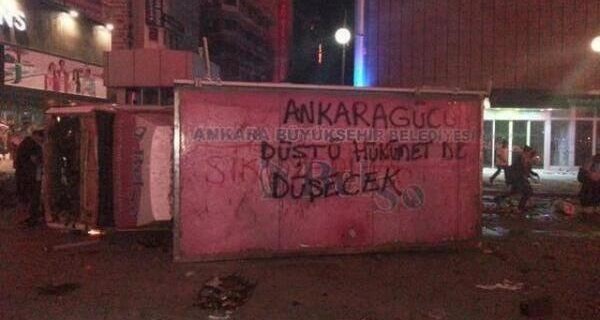 ANKARAGÜCÜ
ANKARA BÜYÜKŞEHİR BELEDİYESİ
DÜŞTÜ HÜKÜMET DE
DÜŞECEK